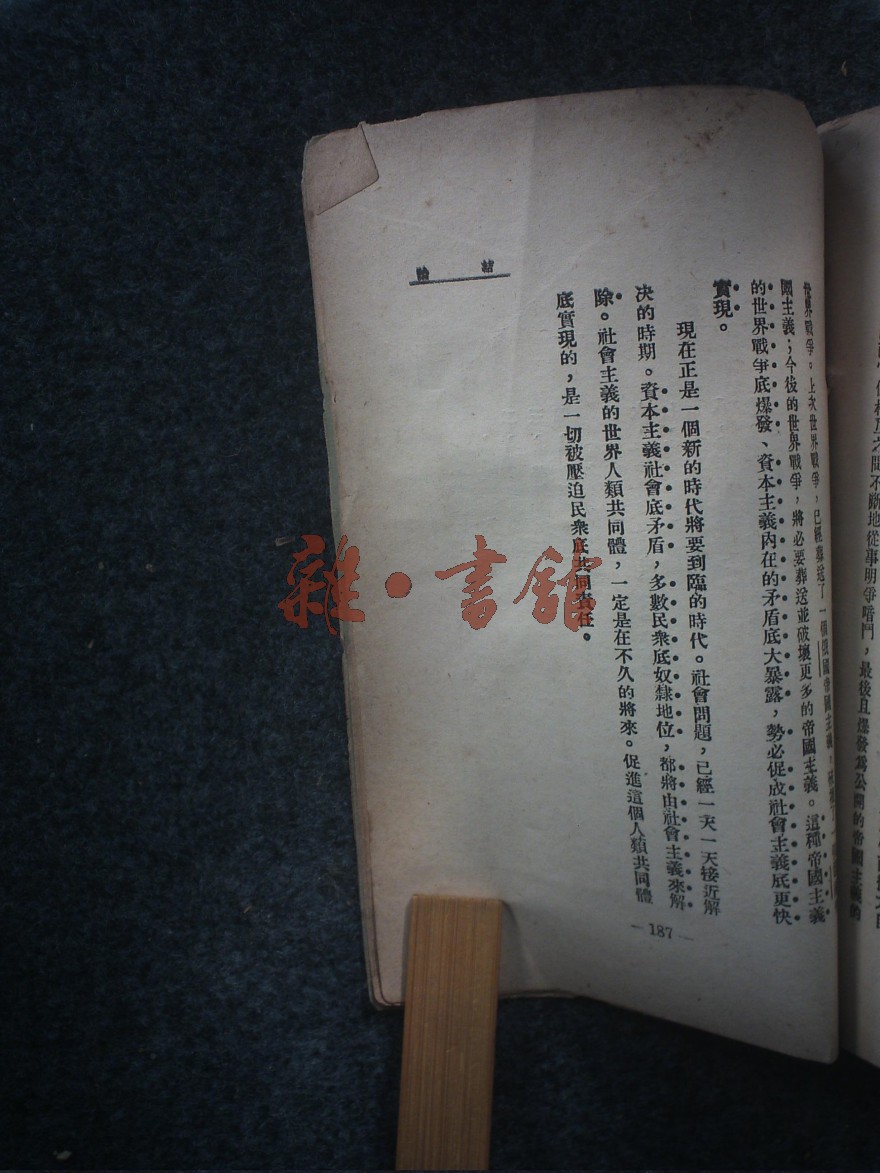 結論
世界戰爭。上次世界戰爭，已經葬送了一個俄國帝國主義，
國主義；今後的世界戰爭，將必要葬送並破壞更多的帝國主義。這種帝國主義
的世界戰爭底爆發、資本主義內在的矛盾底大暴露，勢必促成社會主義底更快
實現。
現在正是一個新的時代將要到臨的時代。社會問題，已經一天一天接近解
決的時期。資本主義社會底矛盾，多數民衆底奴隸地位，都將由社會主義來解
除。社會主義的世界人類共同體，一定是在不久的將來。促進這個人類共同體
底實現的，是一切被壓迫民衆底共同責任。
— 187 —
不斷地從事明爭暗鬥，最後且爆發為公開的帝國主義的
雜·書館